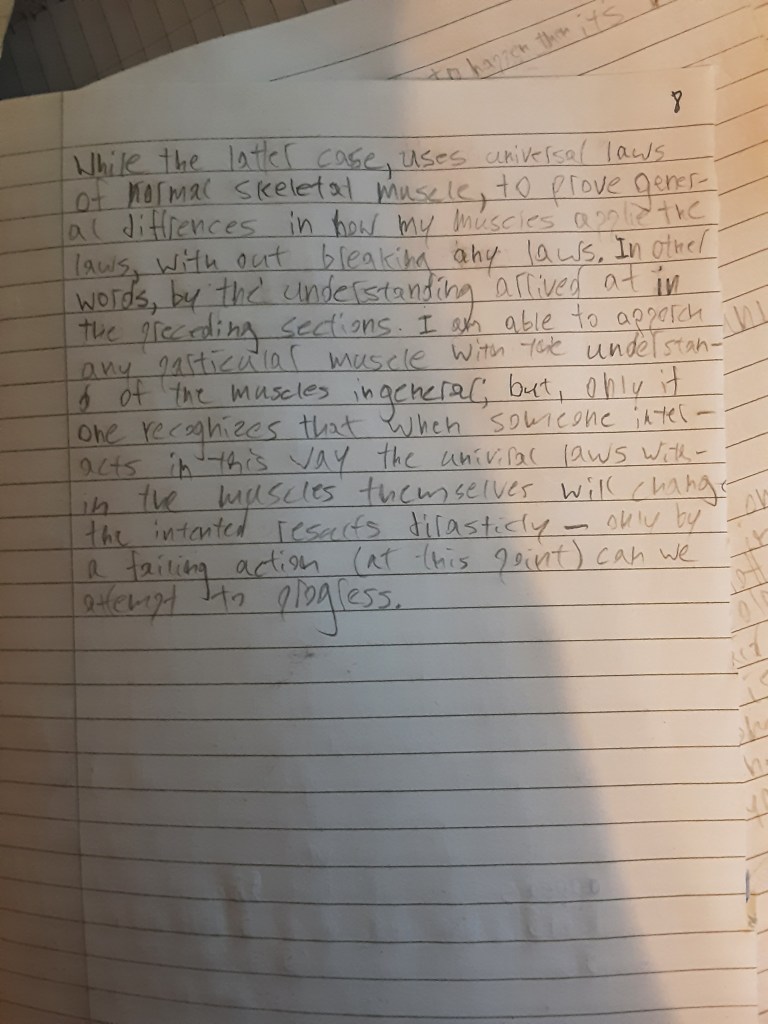 to happen then its
8
While the latter case, uses universal laws
of normal skeletal muscle, to prove gener-
al diffrences in how my muscles applie the
laws, with out breaking any laws. In other
words, by the understanding arrived at in
the preceding sections. I am able to approch
any particular muscle with the understan-
d of the muscles in general; but, only if
one recognizes that when someone inter-
acts in this way the univiral laws with-
in the muscles themselves will change
the intented results dirasticly — only by
a failing action (at this point) can we
attempt to progress.